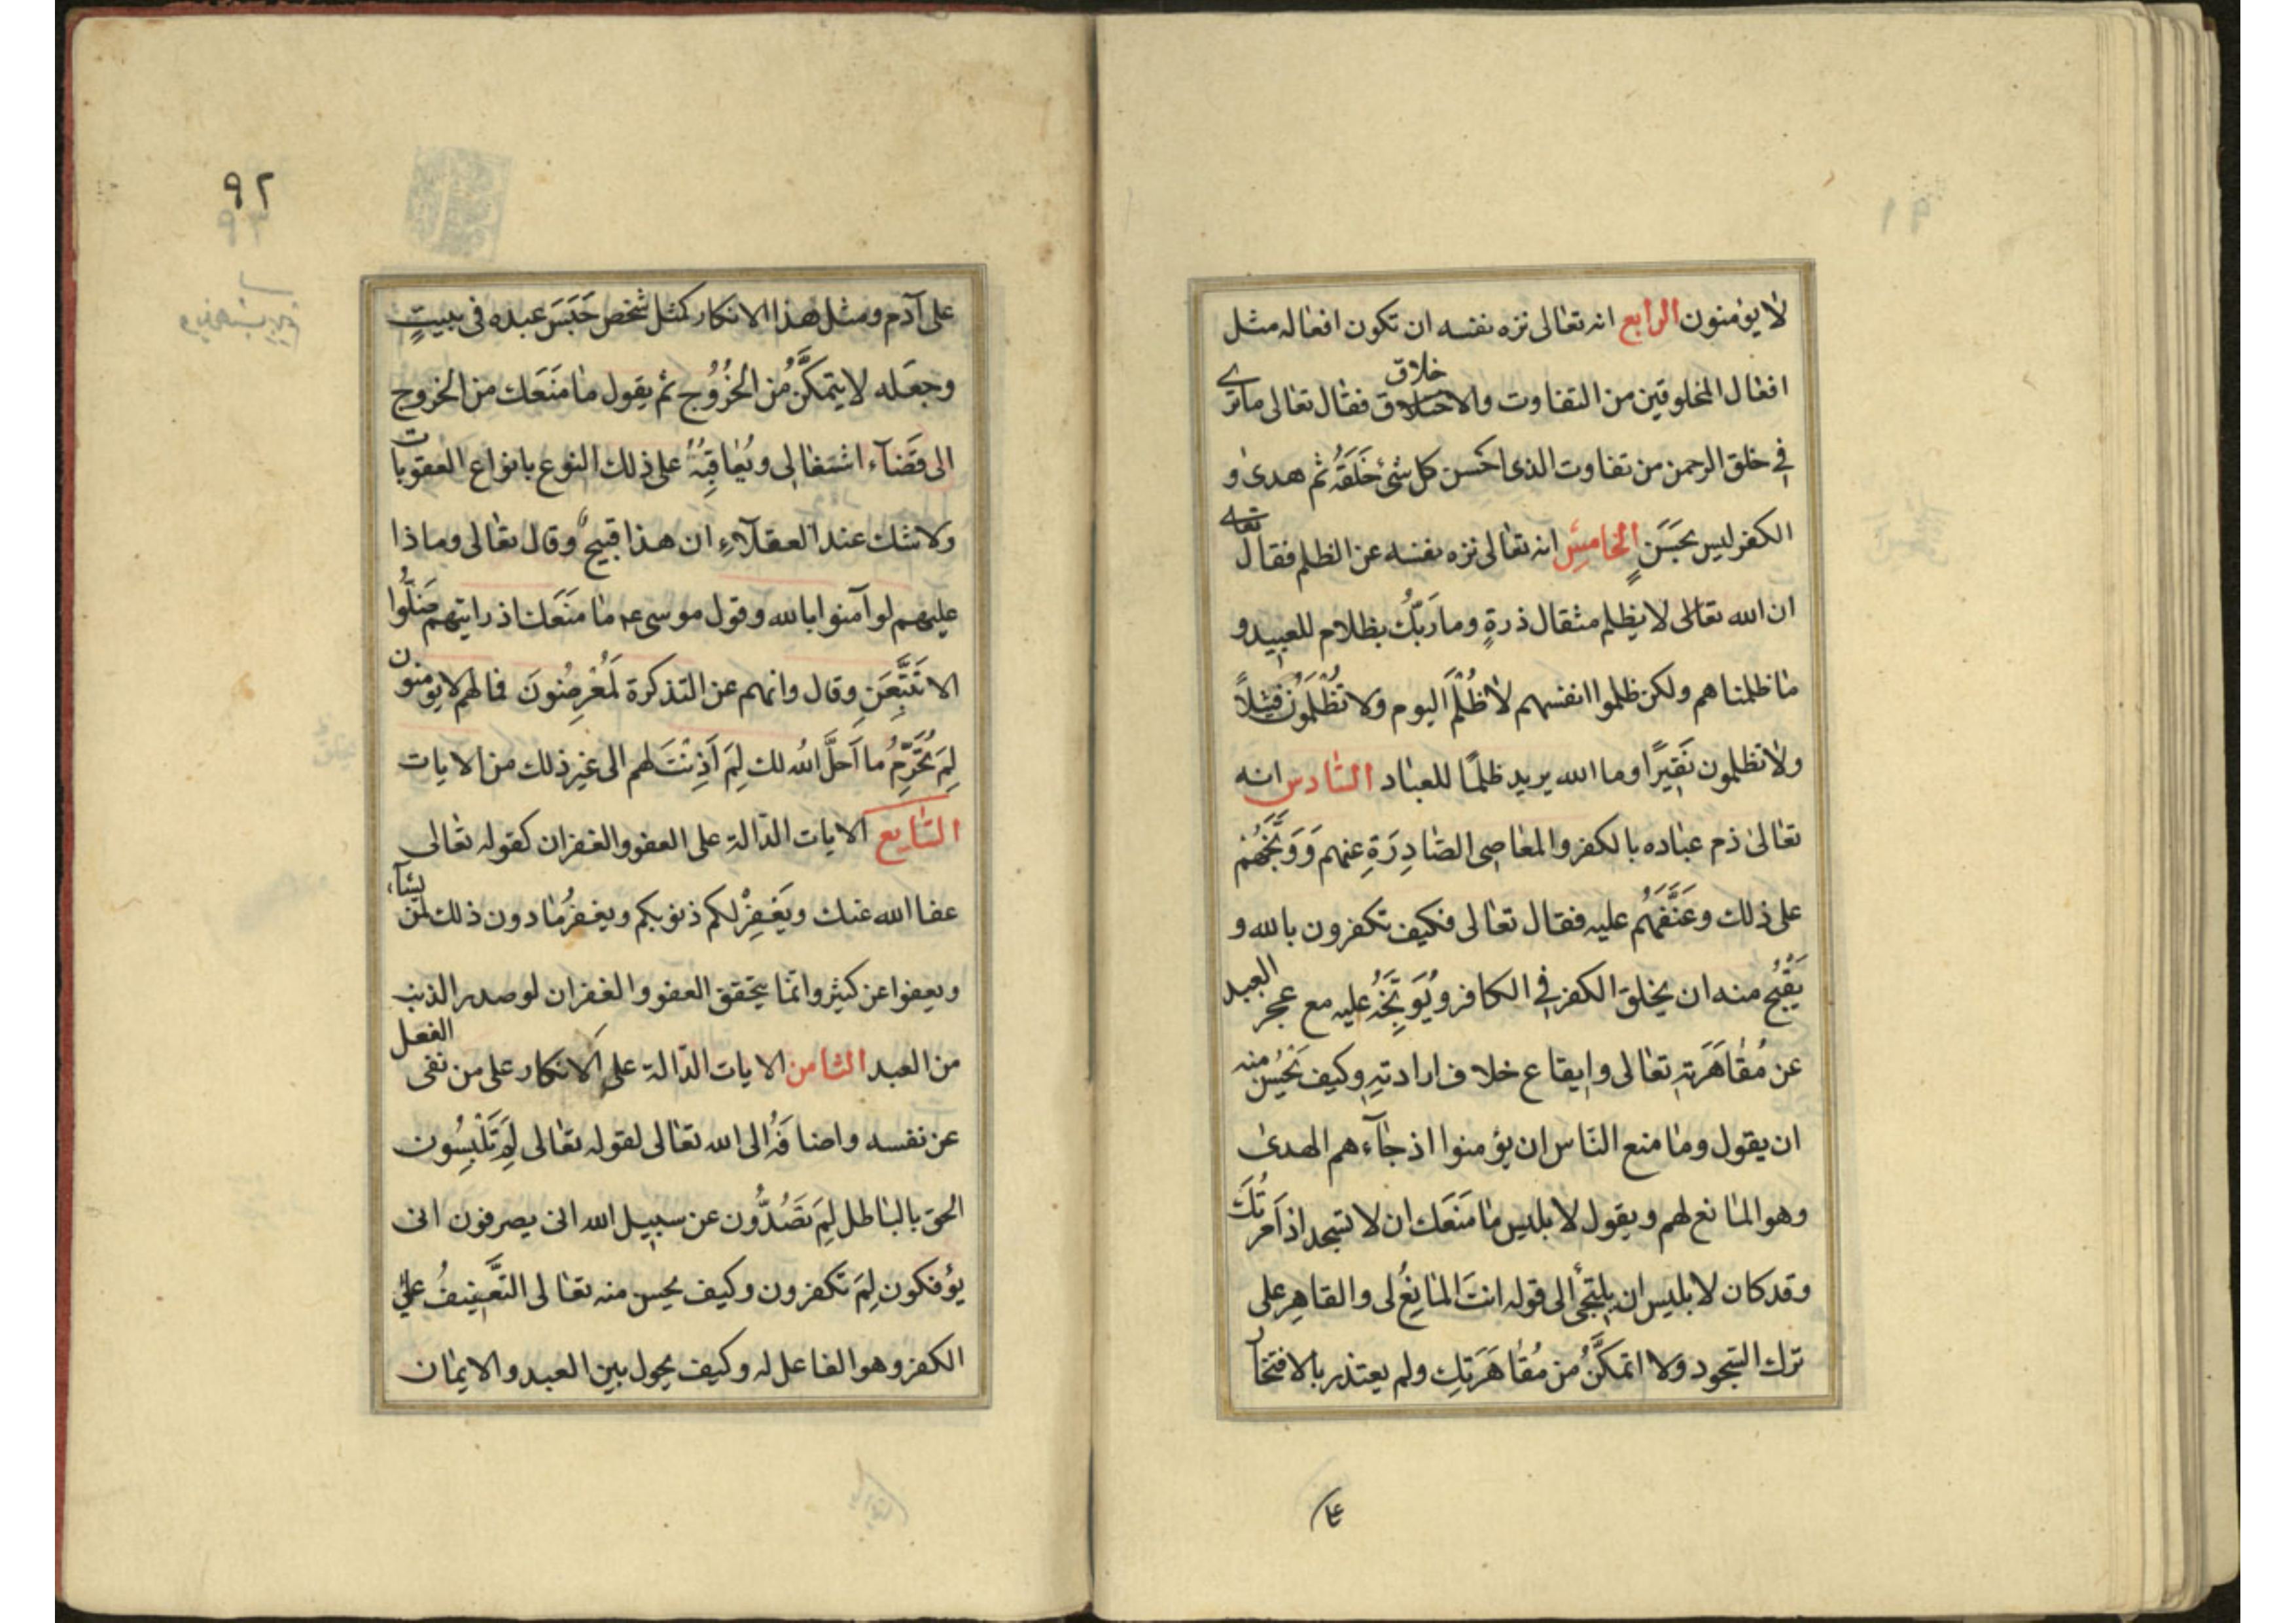 لا يؤمنون الرابع انه تعالى نزه نفسه ان تكون افعاله مثل
افعال المخلوقين من التفاوت والاختلاق فقال تعالى ماترى
خلاق
في خلق الرحمن من تفاوت الذى احسن كل شئ خَلَقَهُ ثم هدى و
الكفر ليس بحَسَنٍ الخامس انه تعالى نزه نفسه عن الظلم فقال تعالى
ان الله تعالى لا يظلم مثقال ذرةٍ وما رَبُّكَ بظلام للعبيد و
ما ظلمناهم ولكن ظلموا انفسهم لا ظُلْمَ اليوم ولا تُظْلَمُونَ فتيلاً
ولا تظلمون نَقِيرًا وما الله يريد ظلمًا للعباد السّادس انه
تعالى ذم عباده بالكفر والمعاصى الصّادِرَةِ عنهم وَوَبَّخَهُمْ
على ذلك وعَنَّفَهُم عليه فقال تعالى فكيف تكفرون بالله و
يَقْبُحُ منه ان يخلق الكفر في الكافر ويُوَبِّخَهُ عليه مع عجز العبد
عن مُقَاهَرَتِهِ تعالى وايقاع خلاف ارادتهِ وكيف يَحْسُنُ منه
ان يقول وما منع النّاس ان يؤمنوا اذ جآءهم الهدى
وهو المانع لهم ويقول لابليس ما مَنَعَكَ ان لا تسجد اذ اَمَرْتُكَ
وقد كان لابليس ان يلتجئ الى قوله انتَ المانِعُ لى والقاهِر على
ترك السّجود ولا اتمكَّنُ من مُقَاهَرَتِك ولم يعتذر بالافتخار
على
٩٢
على آدم ومثل هذا الانكار كمثل شخص حَبَسَ عبده فى بيتٍ
وجعله لا يتمكَّنُ من الخُرُوُج ثم يقول ما مَنَعَك من الخروج
الى قَضَآء اشتغالى ويُعَاقِبُهُ على ذلك النوع بانواع العقوبات
ولا شك عند العقلآءِ ان هذا قبيحٌ وقال تعالى وماذا
عليهم لو آمنوا بالله وقول موسى ع م ما مَنَعَك اذ رايتهم ضَلُّوا
الا تَتَّبِعَنِ وقال وانهم عن التذكرة لَمُعْرِضُونَ فما لهم لا يؤمنون
لِمَ تُحَرِّمُ ما اَحَلَّ اللهُ لك لِمَ اَذِنْتَ لهم الى غير ذلك من الايات
السّابع الايات الدّالة على العفو والغفران كقوله تعالى
عفا الله عنك ويَغْفِرْ لكم ذنوبكم ويغفرُ ما دون ذلك لمن يشآء
ويعفوا عن كثير وانّما يتحقق العفو والغفران لو صدر الذنب
من العبد الثامن الايات الدّالة على الانكار على من نفى الفعل
عن نفسه واضافَهُ الى الله تعالى لقوله تعالى لِمَ تَلْبِسُون
الحق بالباطل لِمَ تَصُدُّون عن سبيل الله انى يصرفون انى
يؤفكون لِمَ تكفرون وكيف يحسن منه تعالى التَّعْنِيفُ على
الكفر وهو الفاعل له وكيف يحول بين العبد والايمان